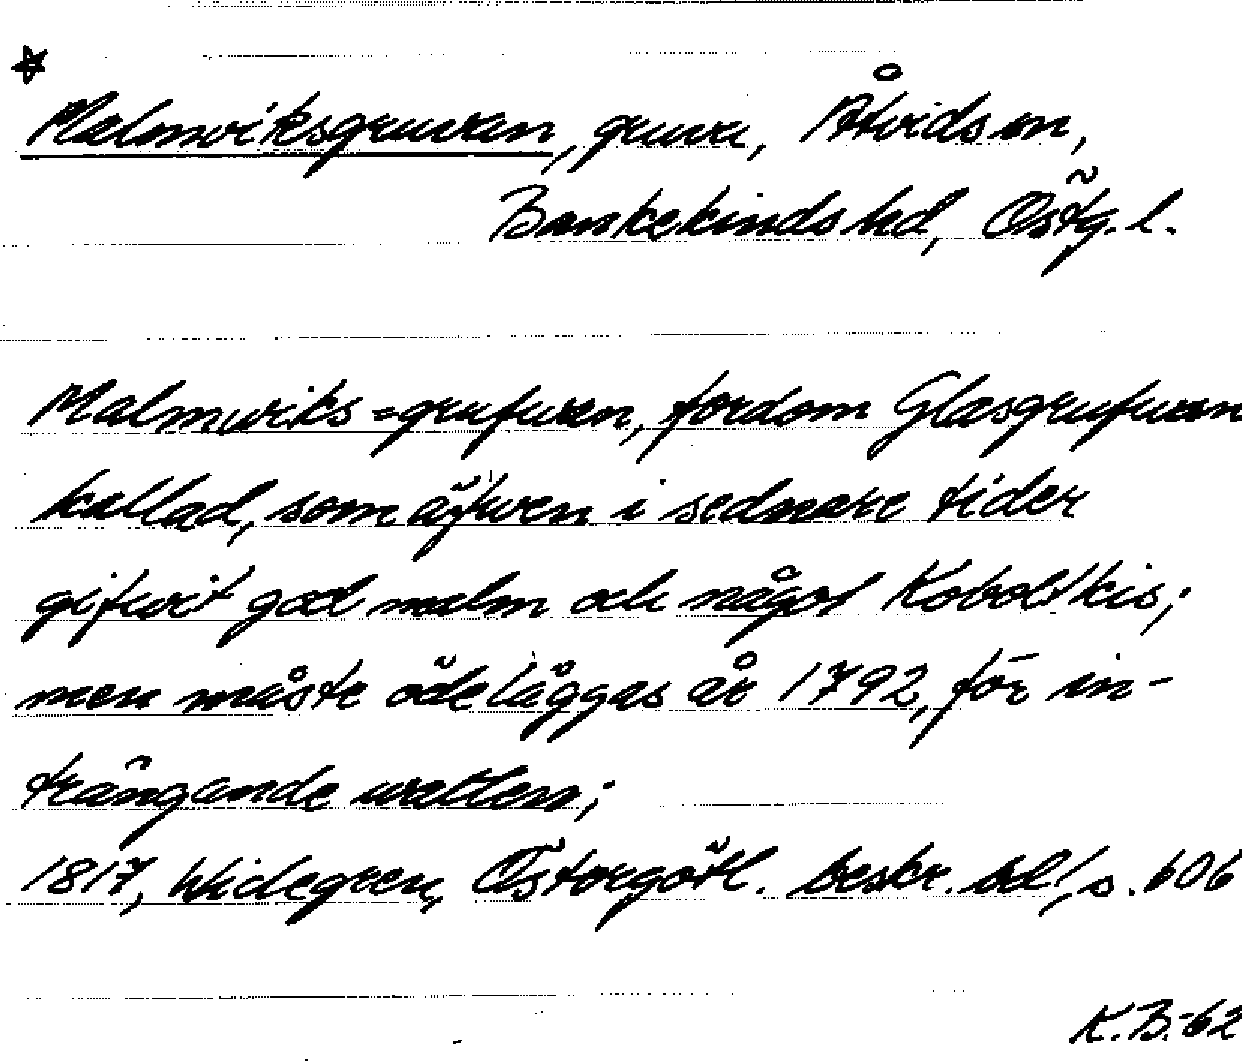 Malmviksgruvan, gruva, Åtvids sn,
Bankekinds hd, Östg. l.
Malmwiks=grufwan, fordom Glasgrufwan
kallad, som äfwen i sednare tider
gifwit god malm och något Koboltkis;
men måste ödeläggas år 1792, för in-
trängande watten;
1817, Widegren, Östergötl. beskr. bd 1, s. 606
K.B.-62